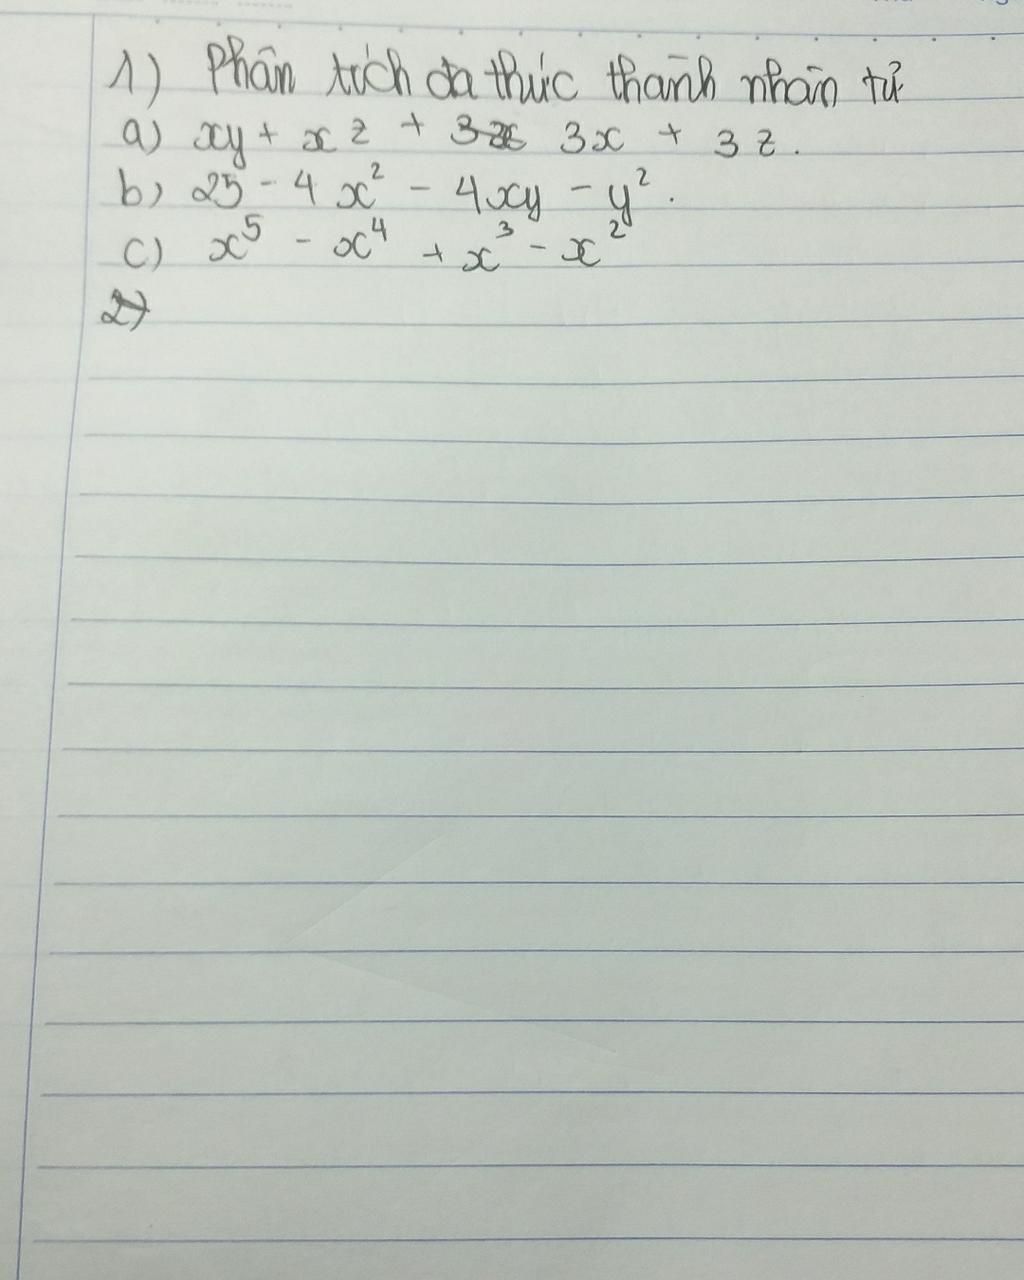 1) Phân tích đa thức thành nhân tử
a) xy + xz + 3x + 3z.
b) 25 - 4x² - 4xy - y².
c) x⁵ - x⁴ + x³ - x²
2)